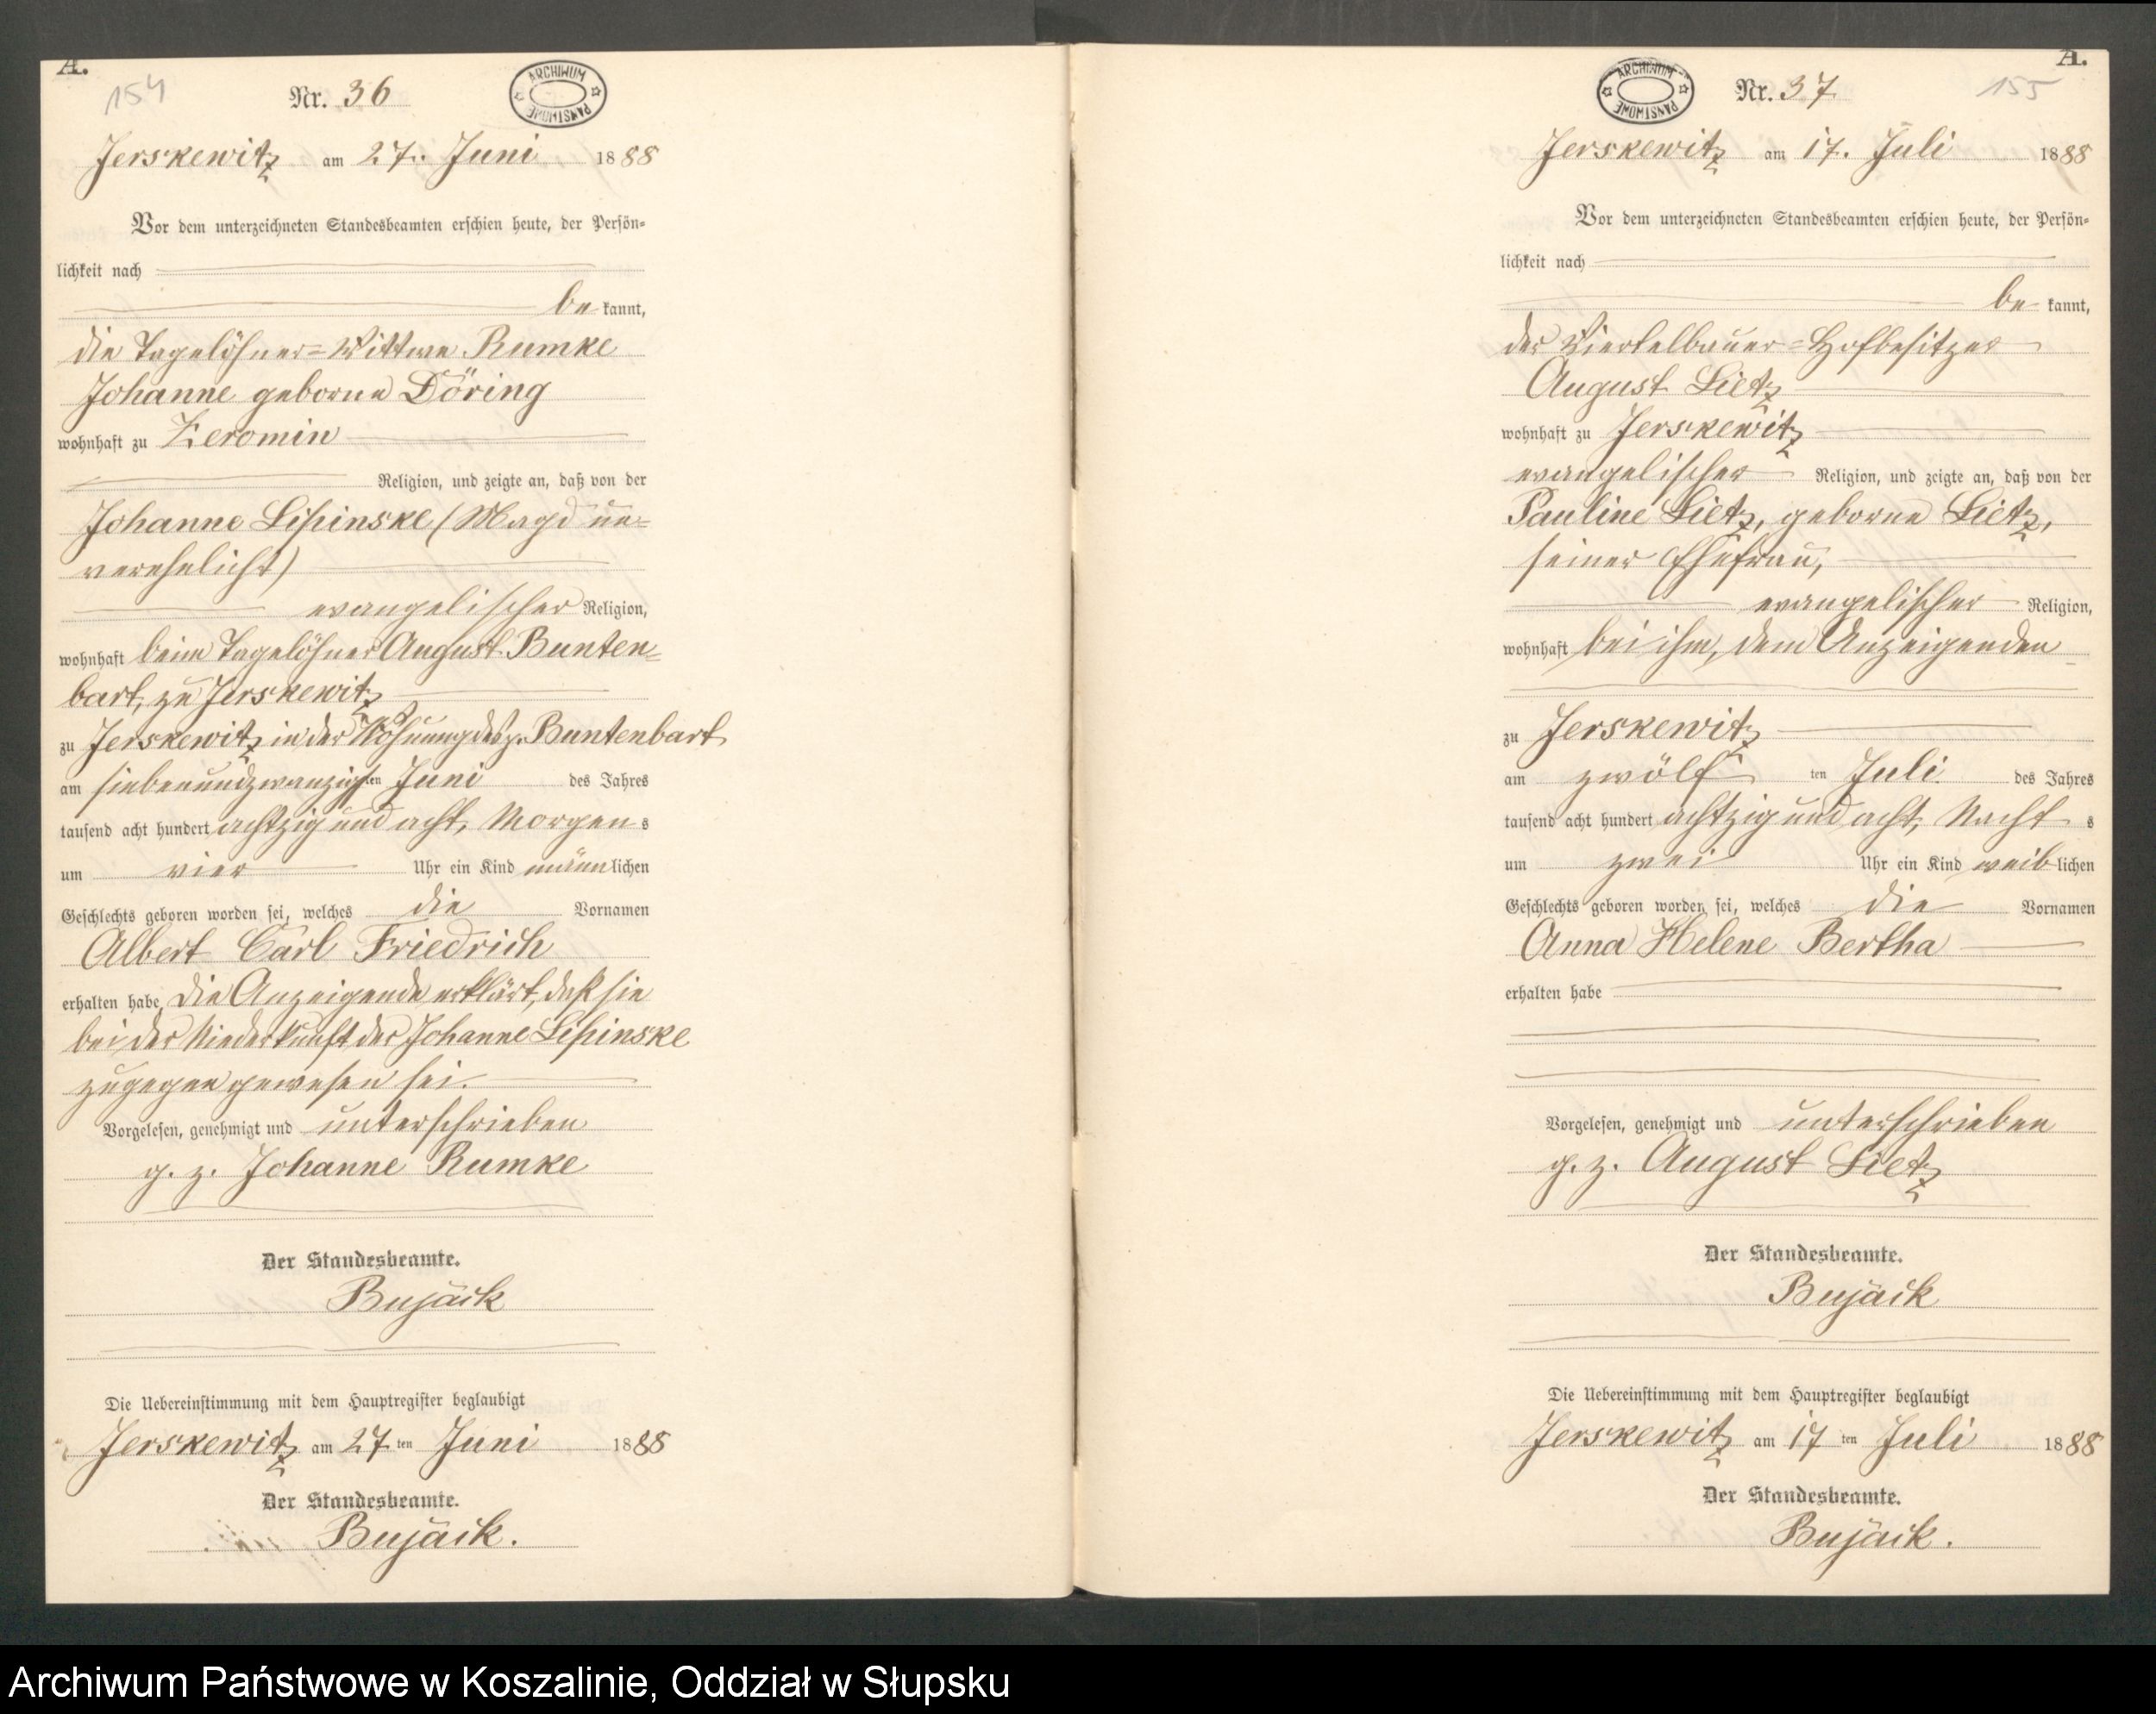 A.
154
Nr. 36
ARCHIWUM PAŃSTWOWE
Jerskewitz am 27. Juni 1888
Vor dem unterzeichneten Standesbeamten erschien heute, der Persön=
lichkeit nach
be kannt,
die Tagelöhner=Wittwe Rumke
Johanne geborne Döring
wohnhaft zu Zeromin
Religion, und zeigte an, daß von der
Johanne Lipinske (Magd un=
verehelicht)
evangelischer Religion,
wohnhaft beim Tagelöhner August Bunten=
bart, zu Jerskewitz
zu Jerskewitz in der Wohnung des p. Buntenbart
am siebenundzwanzigsten Juni des Jahres
tausend acht hundert achtzig und acht, Morgens
um vier Uhr ein Kind männlichen
Geschlechts geboren worden sei, welches die Vornamen
Albert Carl Friedrich
erhalten habe, die Anzeigende erklärt, daß sie
bei der Niederkunft der Johanne Lipinske
zugegen gewesen sei.
Vorgelesen, genehmigt und unterschrieben
g. z. Johanne Rumke
Der Standesbeamte.
Bujäck
Die Uebereinstimmung mit dem Hauptregister beglaubigt
Jerskewitz am 27 ten Juni 1888
Der Standesbeamte.
Bujäck.
A.
155
Nr. 37
ARCHIWUM PAŃSTWOWE
Jerskewitz am 17. Juli 1888
Vor dem unterzeichneten Standesbeamten erschien heute, der Persön=
lichkeit nach
be kannt,
der Viertelbauer=Hofbesitzer
August Lietz
wohnhaft zu Jerskewitz
evangelischer Religion, und zeigte an, daß von der
Pauline Lietz, geborne Lietz,
seiner Ehefrau,
evangelischer Religion,
wohnhaft bei ihm, dem Anzeigenden
zu Jerskewitz
am zwölf ten Juli des Jahres
tausend acht hundert achtzig und acht, Nachts
um zwei Uhr ein Kind weiblichen
Geschlechts geboren worden sei, welches die Vornamen
Anna Helene Bertha
erhalten habe
Vorgelesen, genehmigt und unterschrieben
g. z. August Lietz
Der Standesbeamte.
Bujäck
Die Uebereinstimmung mit dem Hauptregister beglaubigt
Jerskewitz am 17 ten Juli 1888
Der Standesbeamte.
Bujäck.
Archiwum Państwowe w Koszalinie, Oddział w Słupsku